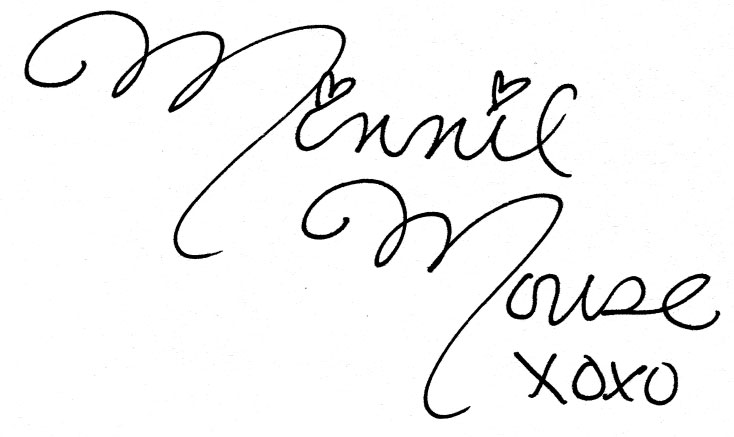 Minnie
Mouse
xoxo